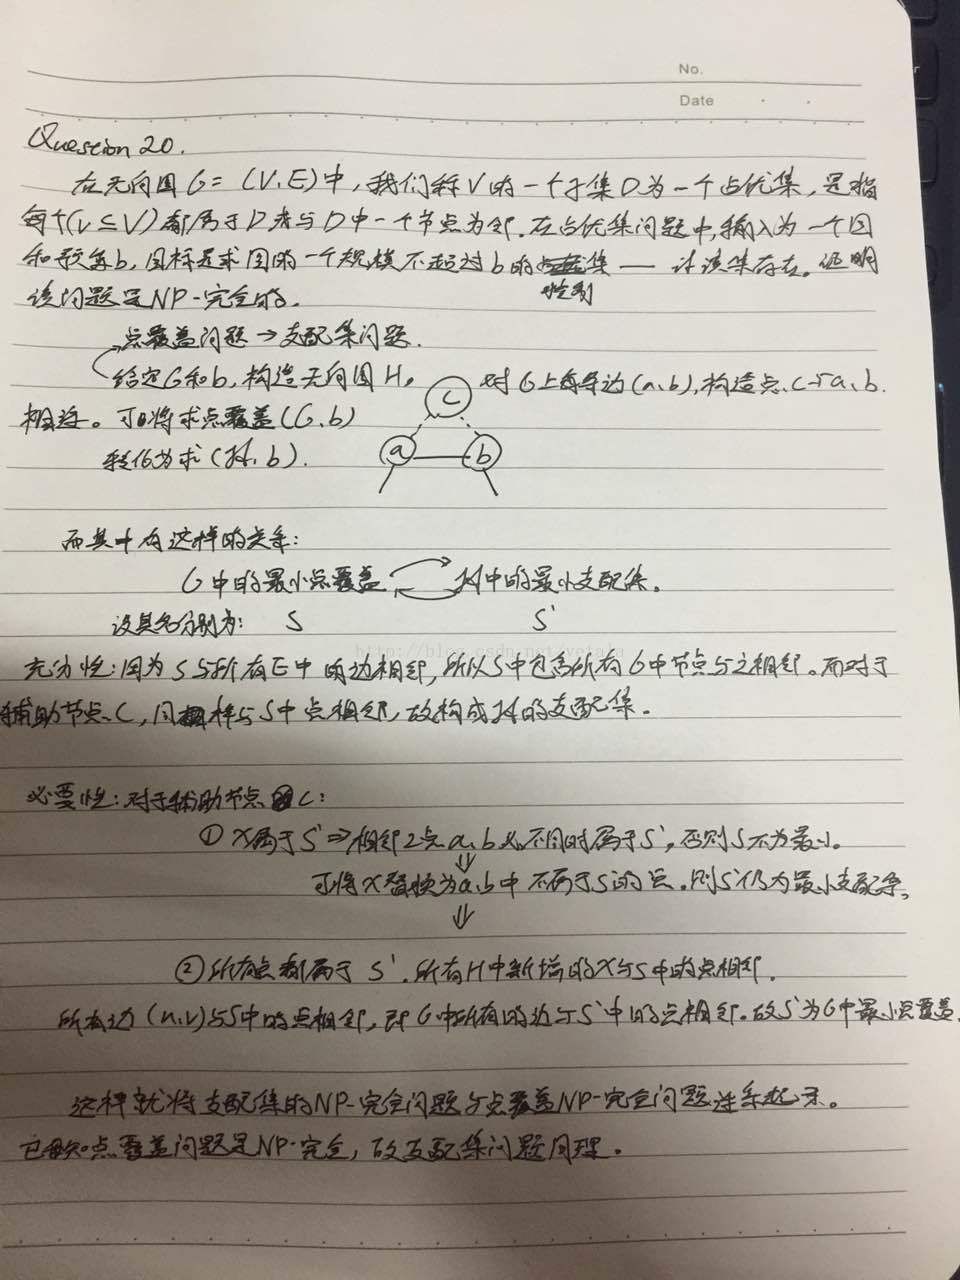 No.
Date
Question 20.
在无向图 G = (V, E) 中, 我们称 V 的一个子集 D 为一个占优集, 是指
每个(v ⊆ V) 都属于 D 或与 D 中一个节点为邻. 在占优集问题中, 输入为一个图
和预算 b, 目标是求图的一个规模不超过 b 的 集 — 该集存在. 证明
该问题是 NP-完全的.
点覆盖问题 → 支配集问题.
给定 G 和 b, 构造无向图 H。 对 G 上每条边 (a, b), 构造点 C 与 a, b
相连。可将求点覆盖 (G, b)
转化为求 (H, b).
C
a b
而其中有这样的关系:
G 中的最小点覆盖 H 中的最小支配集.
设其名分别为: S S'
充分性: 因为 S 与所有 E 中的边相邻, 所以 S 中包含所有 G 中节点与之相邻. 而对于
辅助节点 C, 同样与 S 中点相邻, 故构成 H 的支配集.
必要性: 对于辅助节点 C:
① X 属于 S' ⇒ 相邻 2 点 a, b 必不同时属于 S', 否则 S 不为最小.
⇓
可将 X 替换为 a, b 中不属于 S 的点. 则 S' 仍为最小支配集.
⇓
② 所有点都属于 S'. 所有 H 中新增的 X 与 S 中的点相邻.
所有边 (u, v) 与 S 中的点相邻, 即 G 中所有的边与 S' 中的点相邻. 故 S' 为 G 中最小点覆盖.
这样就将支配集的 NP-完全问题与点覆盖 NP-完全问题连系起来.
已知点覆盖问题是 NP-完全, 故支配集问题同理.